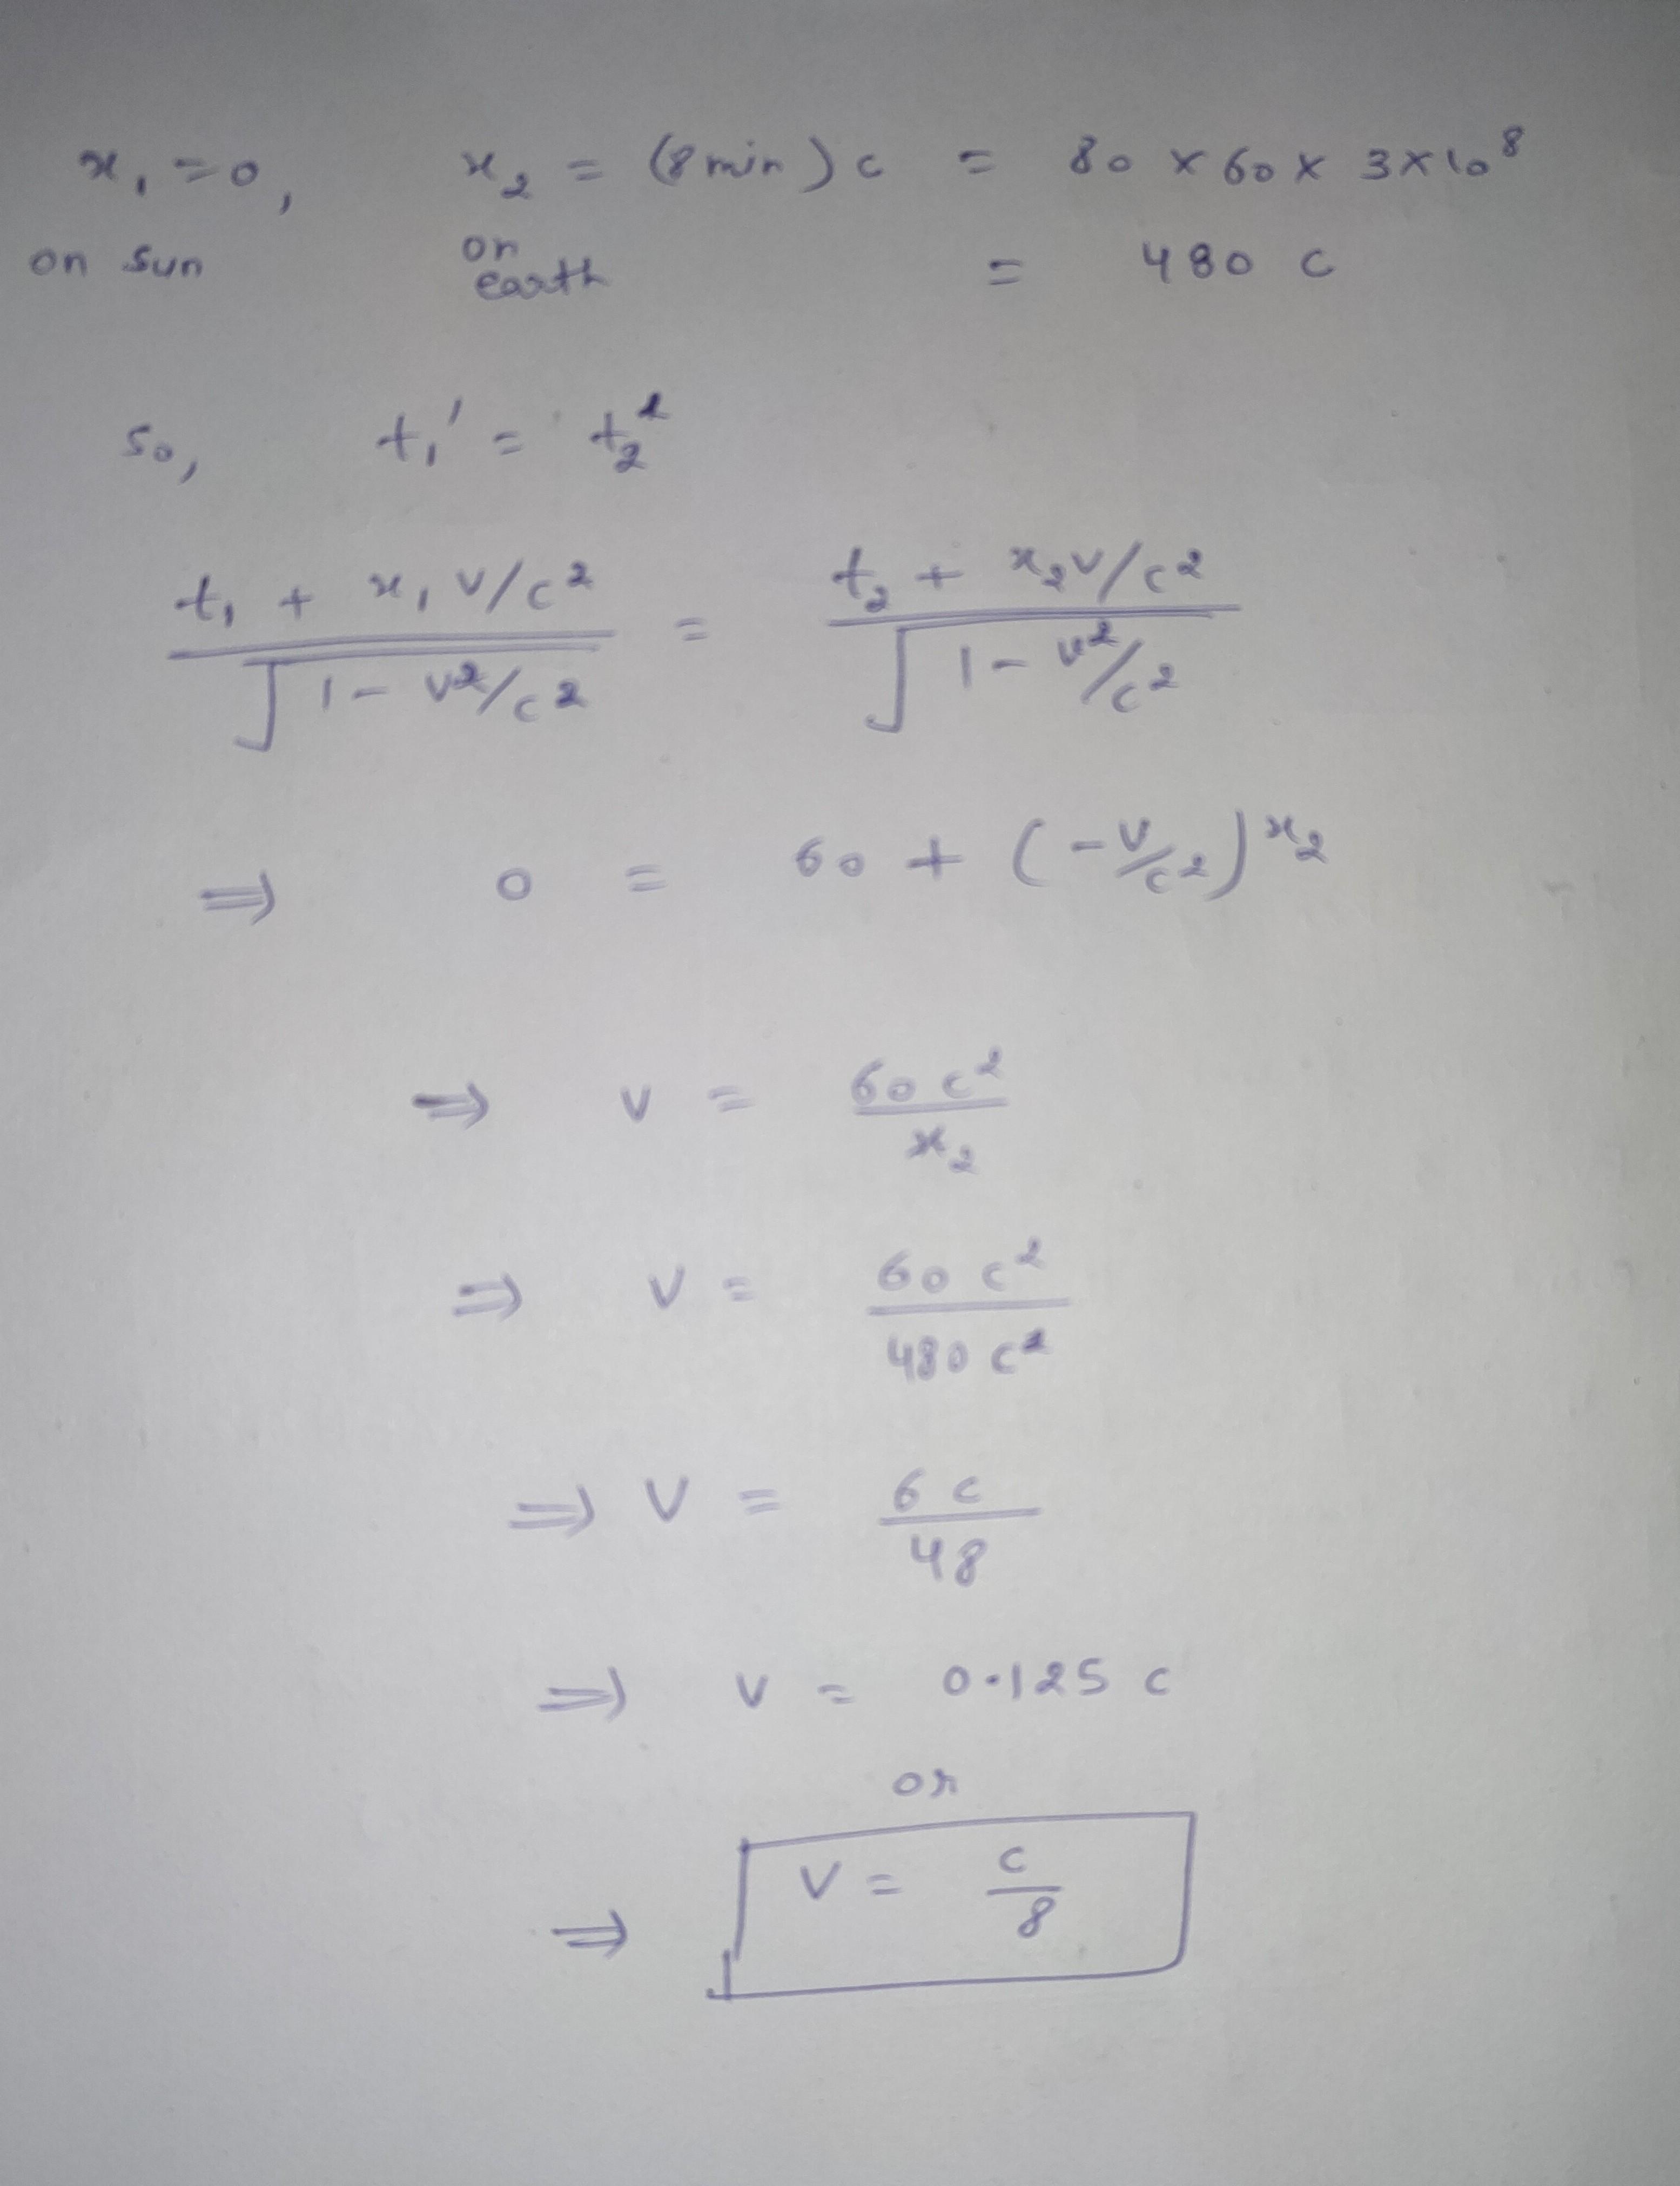 x₁ = 0, x₂ = (8 min) c = 80 × 60 × 3×10⁸
on sun on earth = 480 c
so, t₁' = t₂²
(t₁ + x₁ v/c²) / √(1 - v²/c²) = (t₂ + x₂v/c²) / √(1 - v²/c²)
⇒ 0 = 60 + (-v/c²) x₂
⇒ v = 60 c² / x₂
⇒ v = 60 c² / 480 c²
⇒ v = 6 c / 48
⇒ v = 0.125 c
or
⇒ v = c / 8